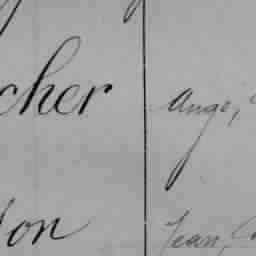 cher Ange,
on Jean,